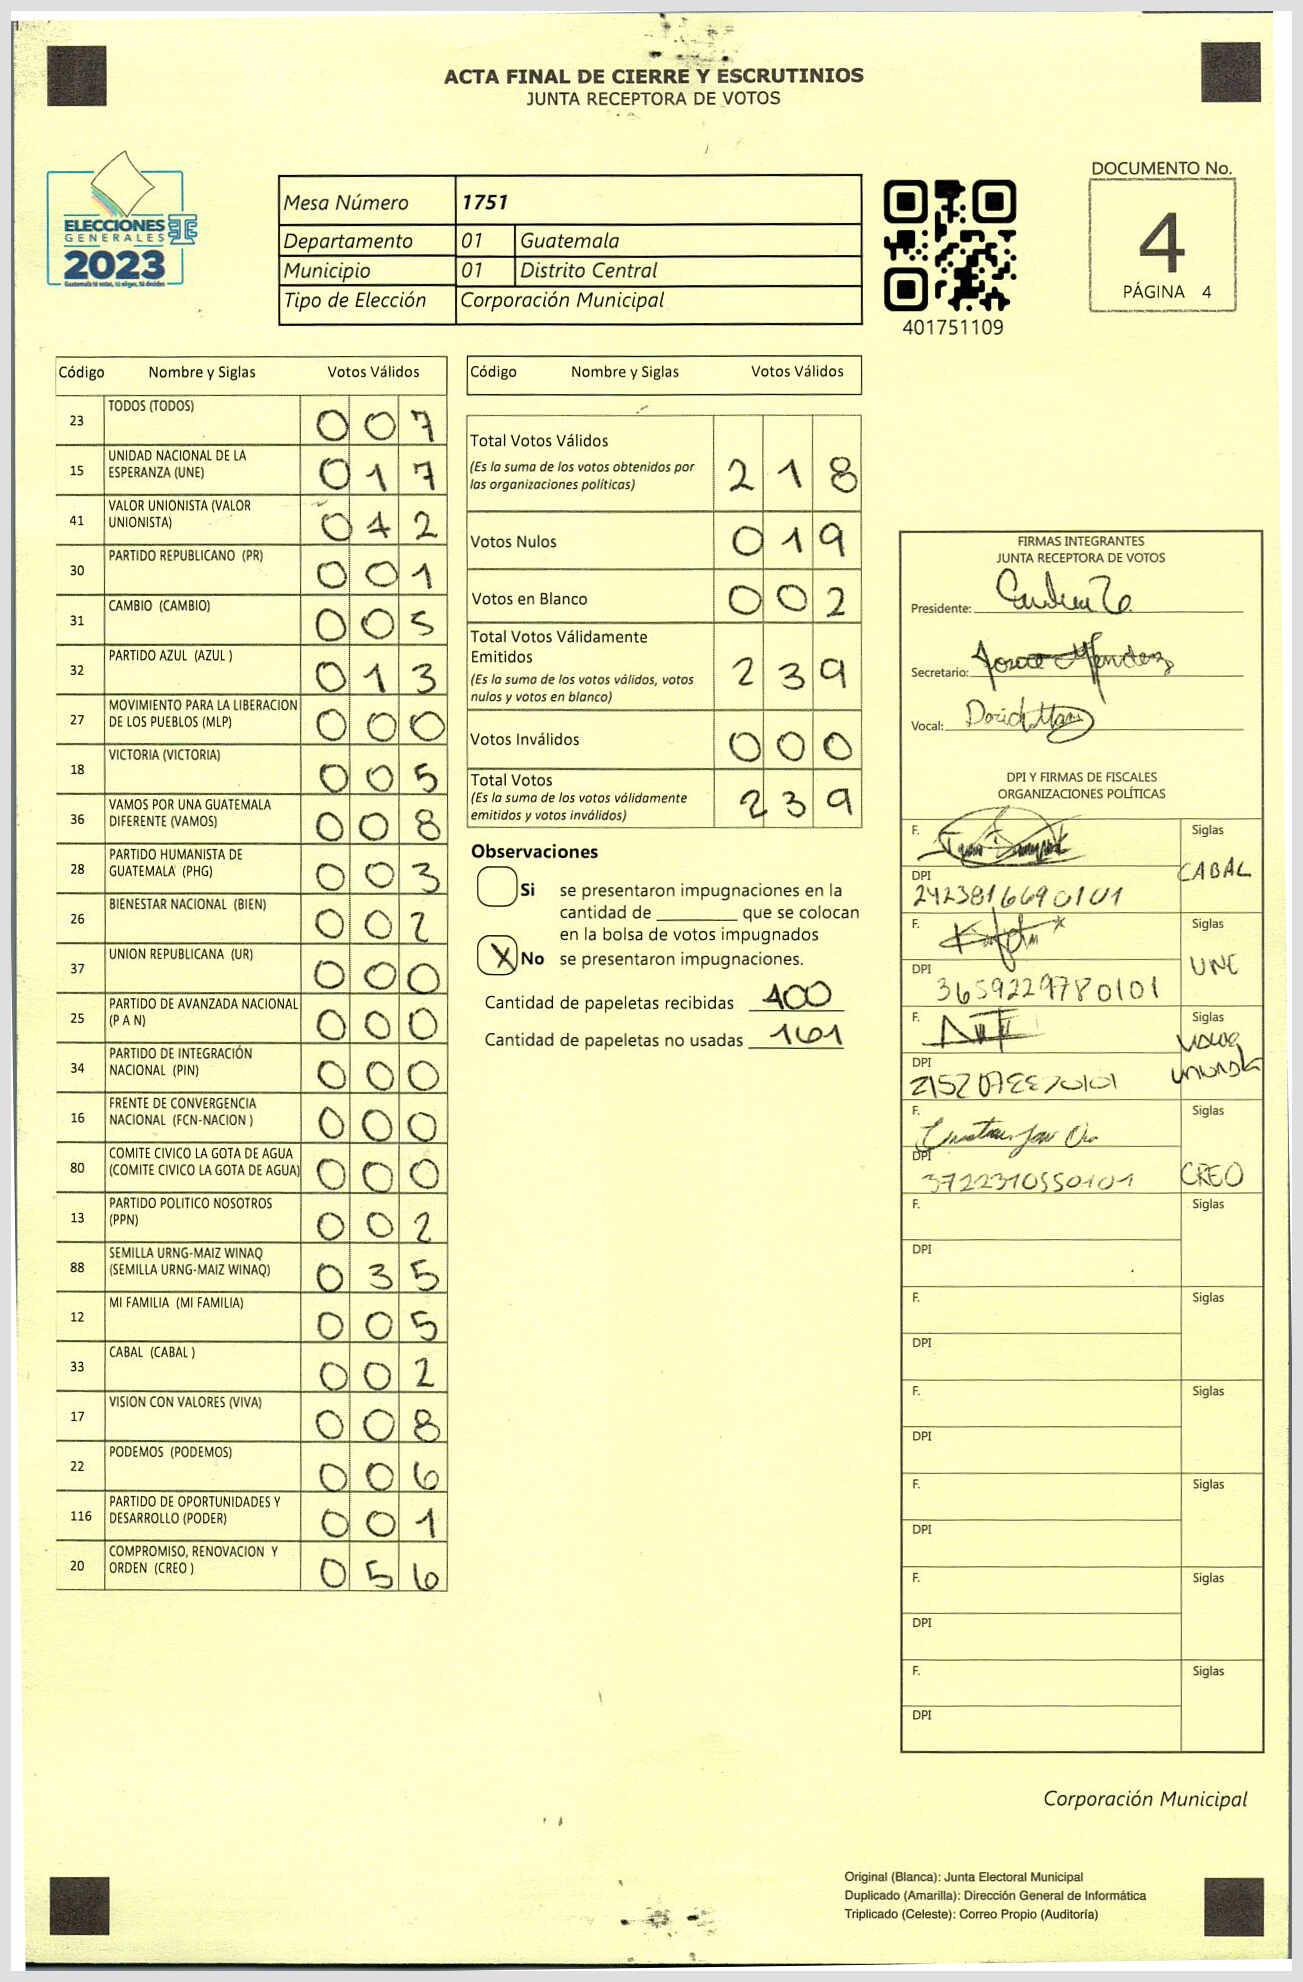 ACTA FINAL DE CIERRE Y ESCRUTINIOS
JUNTA RECEPTORA DE VOTOS
ELECCIONES
GENERALES
2023
Mesa Número 1751
Departamento 01 Guatemala
Municipio 01 Distrito Central
Tipo de Elección Corporación Municipal
401751109
DOCUMENTO No.
4
PÁGINA 4
Código Nombre y Siglas Votos Válidos
23 TODOS (TODOS) 0 0 7
15 UNIDAD NACIONAL DE LA
ESPERANZA (UNE) 0 1 7
41 VALOR UNIONISTA (VALOR
UNIONISTA) 0 4 2
30 PARTIDO REPUBLICANO (PR) 0 0 1
31 CAMBIO (CAMBIO) 0 0 5
32 PARTIDO AZUL (AZUL ) 0 1 3
27 MOVIMIENTO PARA LA LIBERACION
DE LOS PUEBLOS (MLP) 0 0 0
18 VICTORIA (VICTORIA) 0 0 5
36 VAMOS POR UNA GUATEMALA
DIFERENTE (VAMOS) 0 0 8
28 PARTIDO HUMANISTA DE
GUATEMALA (PHG) 0 0 3
26 BIENESTAR NACIONAL (BIEN) 0 0 2
37 UNION REPUBLICANA (UR) 0 0 0
25 PARTIDO DE AVANZADA NACIONAL
(P A N) 0 0 0
34 PARTIDO DE INTEGRACIÓN
NACIONAL (PIN) 0 0 0
16 FRENTE DE CONVERGENCIA
NACIONAL (FCN-NACION ) 0 0 0
80 COMITE CIVICO LA GOTA DE AGUA
(COMITE CIVICO LA GOTA DE AGUA) 0 0 0
13 PARTIDO POLITICO NOSOTROS
(PPN) 0 0 2
88 SEMILLA URNG-MAIZ WINAQ
(SEMILLA URNG-MAIZ WINAQ) 0 3 5
12 MI FAMILIA (MI FAMILIA) 0 0 5
33 CABAL (CABAL ) 0 0 2
17 VISION CON VALORES (VIVA) 0 0 8
22 PODEMOS (PODEMOS) 0 0 6
116 PARTIDO DE OPORTUNIDADES Y
DESARROLLO (PODER) 0 0 1
20 COMPROMISO, RENOVACION Y
ORDEN (CREO ) 0 5 6
Código Nombre y Siglas Votos Válidos
Total Votos Válidos
(Es la suma de los votos obtenidos por
las organizaciones políticas) 2 1 8
Votos Nulos 0 1 9
Votos en Blanco 0 0 2
Total Votos Válidamente
Emitidos
(Es la suma de los votos válidos, votos
nulos y votos en blanco) 2 3 9
Votos Inválidos 0 0 0
Total Votos
(Es la suma de los votos válidamente
emitidos y votos inválidos) 2 3 9
Observaciones
Si se presentaron impugnaciones en la
cantidad de ________ que se colocan
en la bolsa de votos impugnados
X No se presentaron impugnaciones.
Cantidad de papeletas recibidas 400
Cantidad de papeletas no usadas 161
FIRMAS INTEGRANTES
JUNTA RECEPTORA DE VOTOS
Presidente:
Secretario: Mendez
Vocal: David
DPI Y FIRMAS DE FISCALES
ORGANIZACIONES POLÍTICAS
F. Siglas
CABAL
DPI
2423816690101
F. Siglas
UNE
DPI
3659229780101
F. Siglas
Valor
Unionista
DPI
F. Siglas
CREO
DPI
3722310550101
F. Siglas
DPI
F. Siglas
DPI
F. Siglas
DPI
F. Siglas
DPI
F. Siglas
DPI
F. Siglas
DPI
Corporación Municipal
Original (Blanca): Junta Electoral Municipal
Duplicado (Amarilla): Dirección General de Informática
Triplicado (Celeste): Correo Propio (Auditoría)